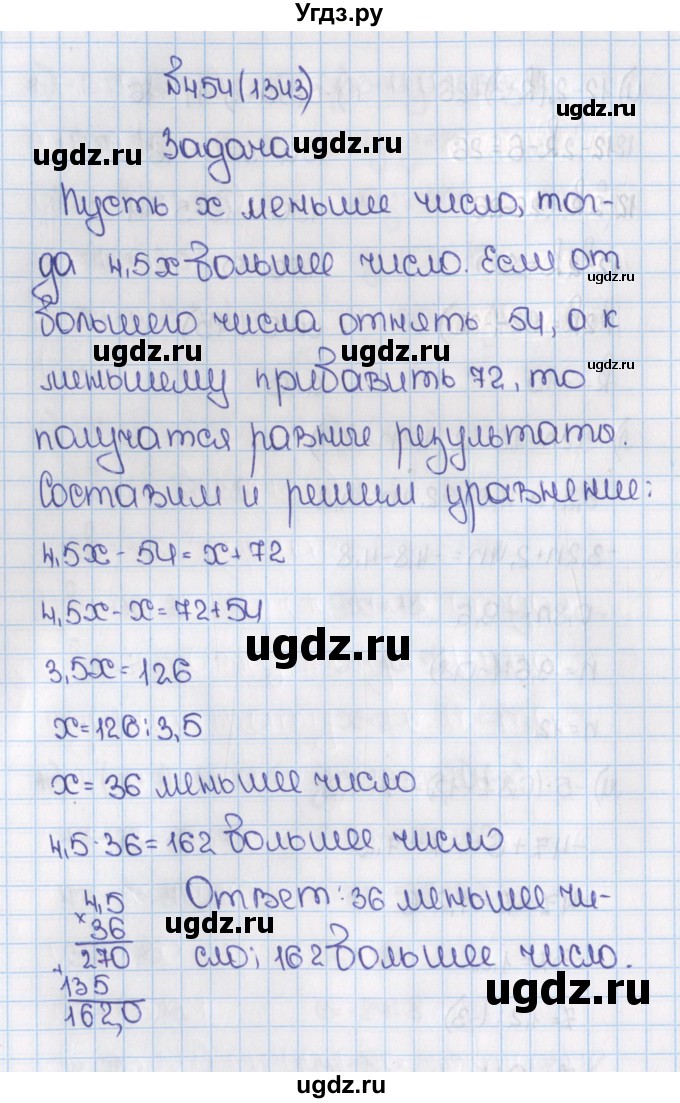 Угдз.ру
№454(1343)
ugdz.ru Задача ugdz.ru
Пусть x меньшее число, тог-
да 4,5x большее число. Если от
ugdz.ru
большего числа отнять 54, а к
ugdz.ru ugdz.ru ugdz.ru
меньшему прибавить 72, то
получатся равные результаты.
Составим и решим уравнение:
4,5x - 54 = x + 72
4,5x - x = 72 + 54
ugdz.ru
3,5x = 126
x = 126 : 3,5
x = 36 меньшее число
4,5 · 36 = 162 большее число
ugdz.ru ugdz.ru
4,5 Ответ: 36 меньшее чи-
× 36 ugdz.ru
+ 270 сло; 162 большее число.
135 ugdz.ru
162,0
ugdz.ru